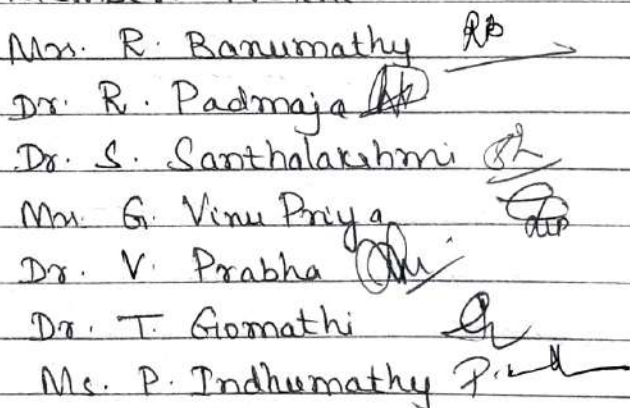 Mrs. R. Banumathy
Dr. R. Padmaja
Dr. S. Santhalakshmi
Mrs. G. Vinu Priya
Dr. V. Prabha
Dr. T. Gomathi
Ms. P. Indhumathy